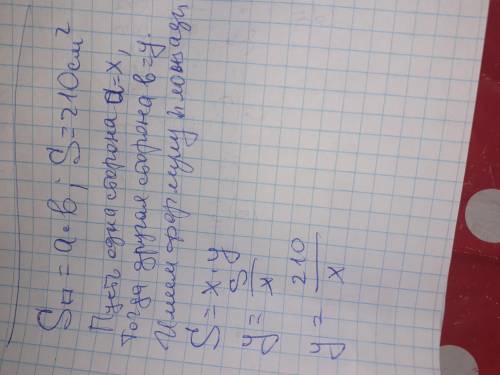 Sп = a·в ; S=210см²
Пусть одна сторона a=x,
тогда другая сторона в=y.
Имеем формулу площади
S = x·y
y = S/x
y = 210/x